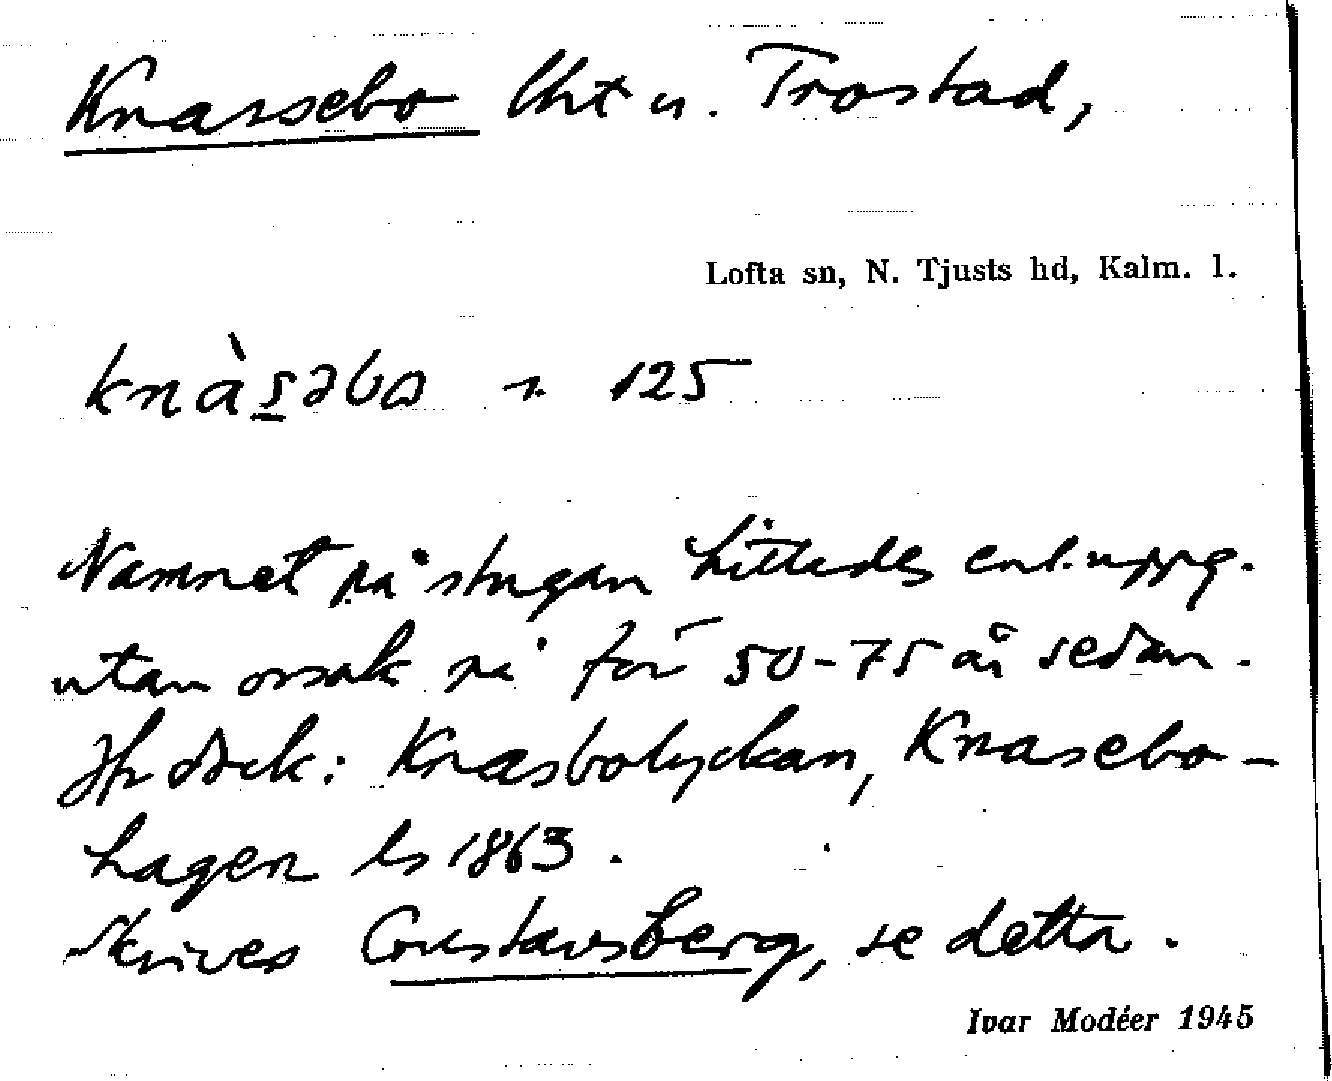 Knassebo lht u. Trostad,
Lofta sn, N. Tjusts hd, Kalm. l.
knàsəbo 125
Namnet på stugan hittades enl. uppg.
utan orsak på för 50-75 år sedan.
Jfr dock: Knasbolyckan, Knasebo-
hagen ls 1863.
Skrives Gustavsberg, se detta.
Ivar Modéer 1945